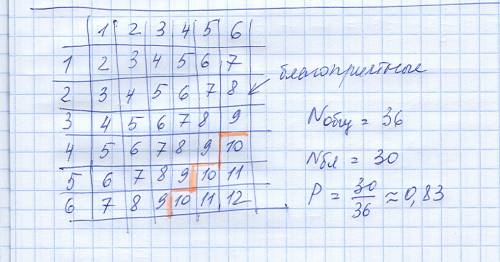 1 2 3 4 5 6
1 2 3 4 5 6 7
2 3 4 5 6 7 8
3 4 5 6 7 8 9
4 5 6 7 8 9 10
5 6 7 8 9 10 11
6 7 8 9 10 11 12
благоприятные
Nобщ = 36
Nбл = 30
P = 30/36 ≈ 0,83